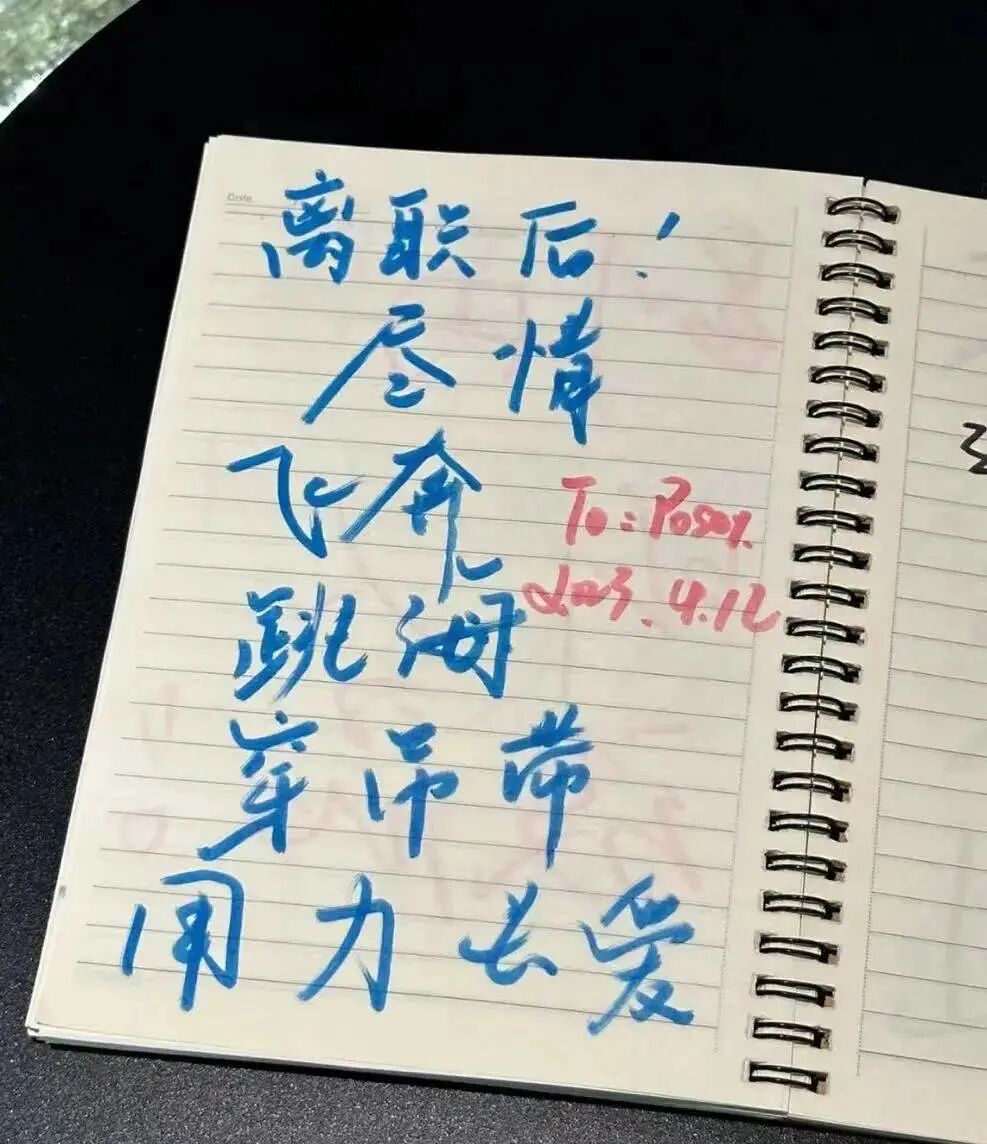 Date
离职后！
尽情
飞奔
To: Posay.
2023.4.12
跳海
穿吊带
用力去爱